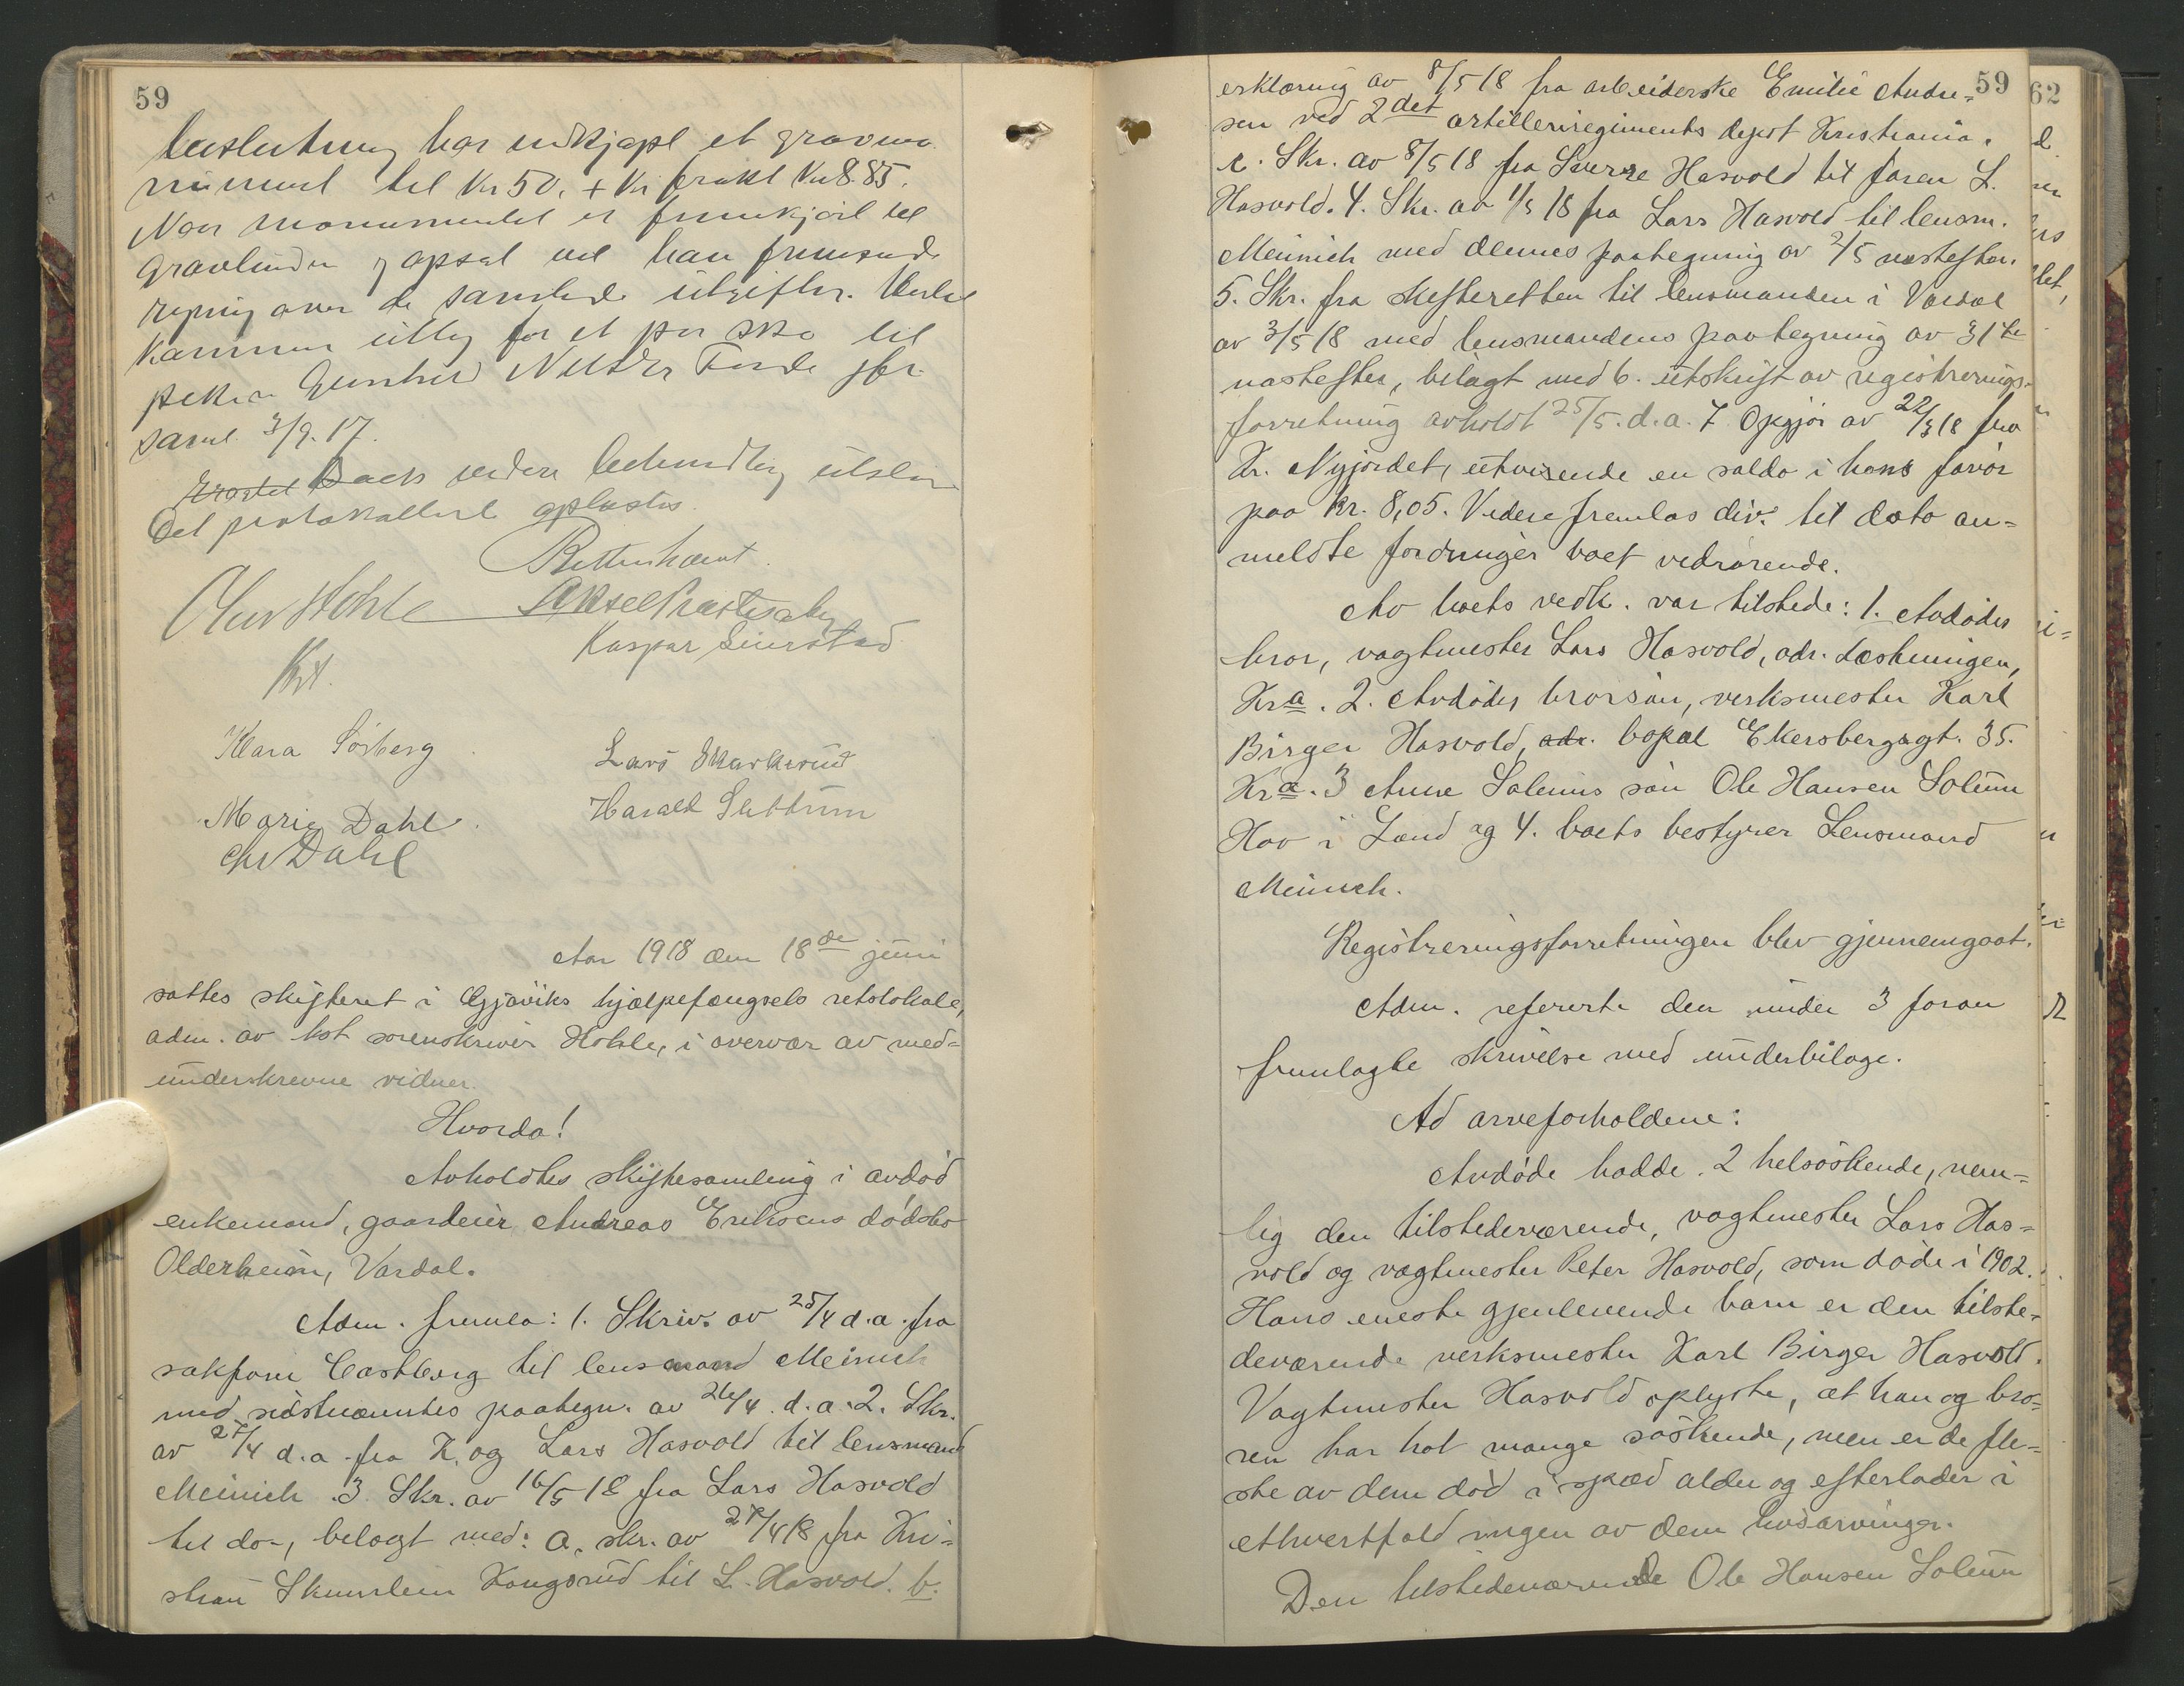 59
beslutning har indkjøpt et gravmo
nument til Kr 50, + Kr frakt Kr 8.85.
Naar monumentet er fremkjørt til
gravlunden og opsat vil han fremsende
regning over de samlede utgifter.
kommer utlæg for et par sko til
piken Gunhild
saml. 3/9. 17.
Boets videre behandling utsl
Det protokollert oplæstes.
Retten hævet.
Olav Hohle Aksel
Krt. Kaspar
Klara Sörberg Lars Skarkerud
Marie Dahl Harald Slettum
Chr Dahl
Aar 1918 den 18de juni
sattes skifteret i Gjøviks hjælpefængsels retslokale,
adm. av kst sorenskriver Hohle, i overvær av med-
underskrevne vidner.
Hvorda!
Avholdtes skiftesamling i avdød
enkemand, gaardeier Andreas Eriksens dødsbo
Olderheim, Vardal.
Adm. fremla: 1. Skriv. av 25/4 d.a. fra
sakfører Castberg til lensmand Meinich
med sidstnævntes paategn. av 26/4. d.a. 2. Skr.
av 27/4 d.a. fra K. og Lars Hasvold til lensmand
Meinich. 3. Skr. av 16/5 18 fra Lars Hasvold
til do-, belagt med: a. skr. av 27/4 18 fra Kri-
stian Kongsrud til L. Hasvold. b.
59
62
erklæring av 8/5 18 fra arbeiderske Emilie Andre-
sen ved 2det artilleriregiments depot Kristiania.
c. Skr. av 8/5 18 fra Sverre Hasvold til faren L.
Hasvold. 4. Skr. av 1/5 18 fra Lars Hasvold til lensm.
Meinich med dennes paategning av 2/5 næstefter.
5. Skr. fra skifteretten til lensmanden i Vardal
av 3/5 18 med lensmandens paategning av 31te
næstefter, bilagt med 6. utskrift av registrerings-
forretning avholdt 25/5. d.a. 7. Opgjør av 22/5 18 fra
Kr. Nyjordet, utvisende en saldo i hans favør
paa Kr. 8,05. Videre fremlas div. til dato an-
meldte fordringer boet vedrørende.
Av boets vedk. var tilstede: 1. Avdødes
bror, vagtmester Lars Hasvold, adr. Fæstningen,
Kra. 2. Avdødes brorsøn, verksmester Karl
Birger Hasvold, adr. bopæl Ekersbergsgt. 35.
Kra. 3 Anne Solums søn Ole Hansen Solum
Hov i Land og 4. boets bestyrer Lensmand
Meinich.
Registreringsforretningen blev gjennemgaat.
Adm. refererte den under 3 foran
fremlagte skrivelse med underbilage.
Ad arveforholdene:
Avdøde hadde 2 helsøskende, nem-
lig den tilstedeværende, vagtmester Lars Has-
vold og vagtmester Peter Hasvold, som døde i 1902.
Hans eneste gjenlevende barn er den tilste-
deværende verksmester Karl Birger Hasvold.
Vagtmester Hasvold oplyste, at han og bro-
ren har hat mange søskende, men er de fle-
ste av dem død i spæd alder og efterlader i
ethvertfald ingen av dem livsarvinger.
Den tilstedeværende Ole Hansen Solum